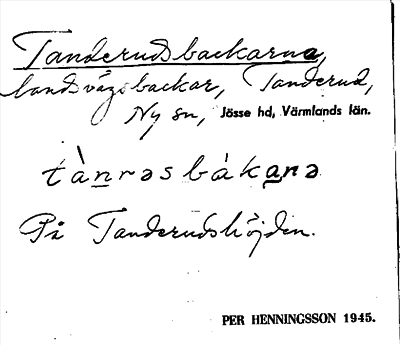 Tanderudsbackarna,
landsvägsbackar, Tanderud,
Ny sn, Jösse hd, Värmlands län.
tànrəsbàkana
På Tanderudshöjden.
PER HENNINGSSON 1945.